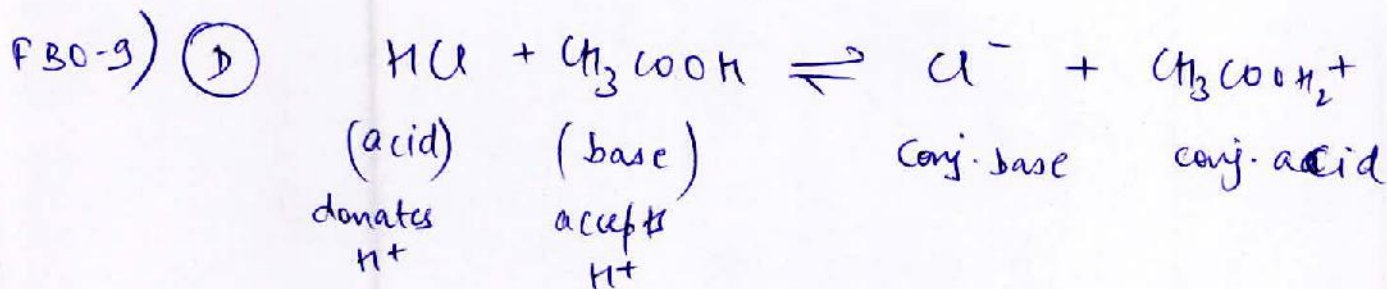 FBO-9) (D) HCl + CH₃COOH ⇌ Cl⁻ + CH₃COOH₂⁺
(acid) (base) Conj. base conj. acid
donates accepts
H⁺ H⁺